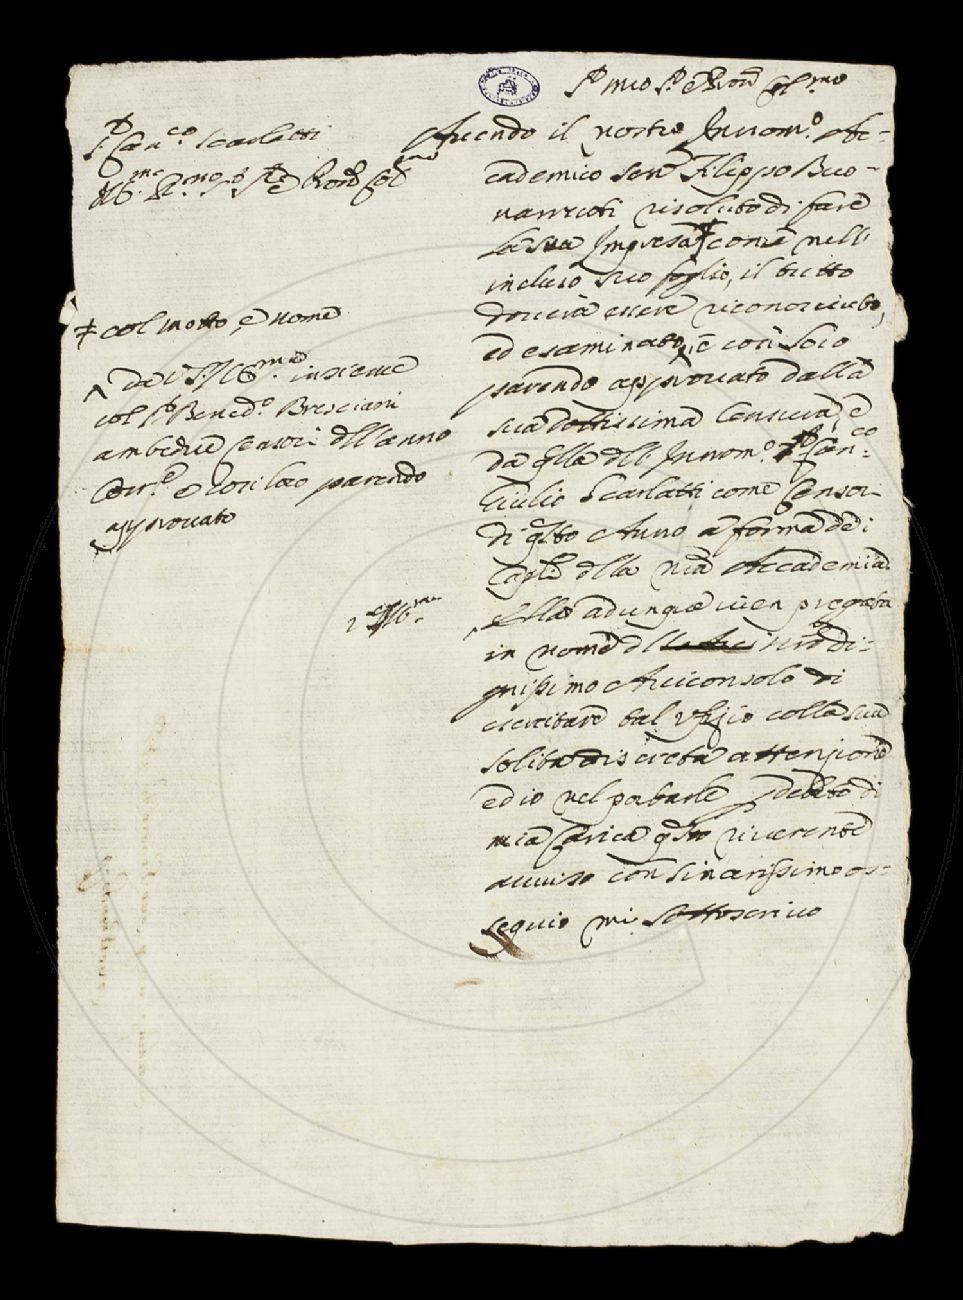 Sr mio Sr e Pron Col.mo
Sr Can.co Scarlatti
Ill.mo R.mo Sr Sr e Pron Col.mo
Avendo il nostro Innom.o Ac-
cademico Sen.r Filippo Buo-
narruoti risoluto di fare
la sua Impresa ǂ come nell
incluso suo foglio, il tutto
dovrà essere riconosciuto,
ed esaminato, ^ e così loco
parendo approvato dalla
sua dottissima Censura, e
da qlla dell Innom.o Sr Can.co
Giulio Scarlatti come Censor
di qsto Anno a forma dei
Capli dlla nra Accademia.
Ella adunque vien pregata
in nome dl nro di-
gnissimo Arciconsolo di
esercitare tal ufizio colla sua
solita discreta attenzione
ed io nel portarle p debito di
mia Carica qsto riverente
avviso con sincerissimo os-
sequio mi sottoscrivo
ǂ col motto, e nome
^ da V.S. Ill.ma insieme
col Sr Bened.o Bresciani
ambedue Censori dll anno
Corr.e e così loco parendo
approvato
Ill.mo